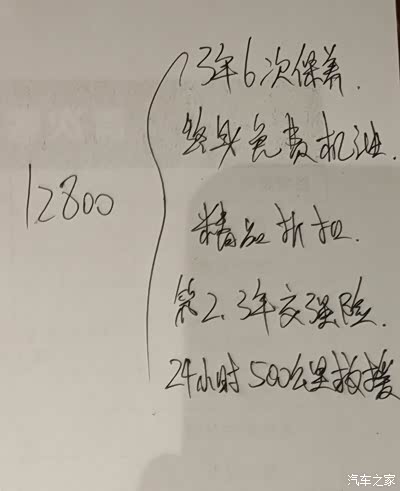 12800
3年6次保养.
终身免费机油.
精品折扣.
第2.3年交强险.
24小时500公里救援
汽车之家